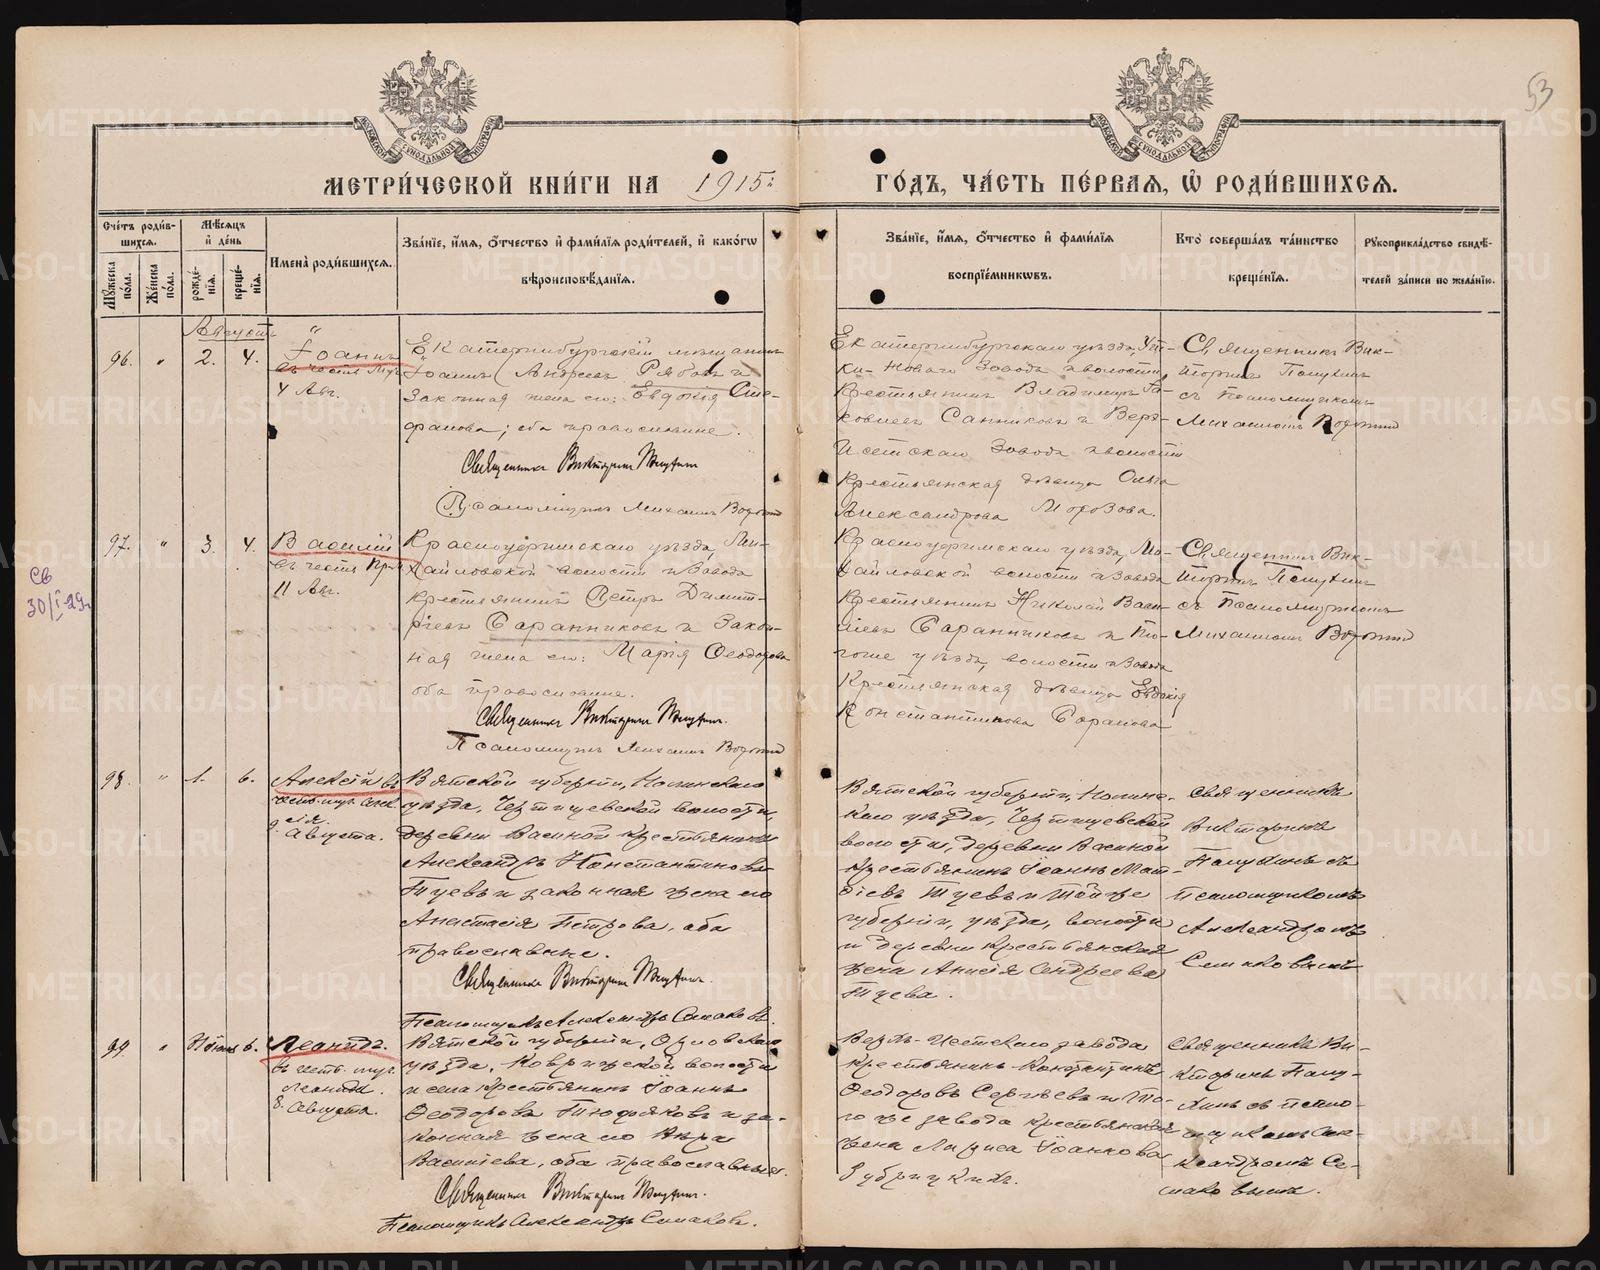 53
МЕТРИ́ЧЕСКОЙ КНИ́ГИ НА 1915 й
ГО́ДЪ, ЧА́СТЬ ПЕ́РВАЯ, Ѡ РОДИ́ВШИХСЯ.
Сче́тъ роди́в-
шихся.
Мѣ́сяцъ
и҆ де́нь
Му́жеска по́ла.
Же́нска по́ла.
рожде́-
нїя.
креще́-
нїя.
И҆мена̀ роди́вшихся.
Зва́нїе, и҆́мя, о҆́тчество и҆ фами́лїя роди́телей, и҆ како́гѡ
вѣроисповѣ́данїя.
Зва́нїе, и҆́мя, о҆́тчество и҆ фами́лїя
воспрїе́мниковъ.
Кто̀ соверша́лъ та́инство
креще́нїя.
Рукоприкла́дство свидѣ́-
телей за́писи по жела́нїю.
Августъ
96. " 2. 4.
Іоаннъ
въ честь муч.
4 Авг.
Екатеринбургскій мѣщанинъ
Іоаннъ Андреевъ Рябовъ и
законная жена его: Евдокія Сте-
фанова; оба православные.
Священникъ Викторинъ
Псаломщикъ Михаилъ
Екатеринбургскаго уѣзда, Ут-
ки- Новаго завода и волости,
крестьянинъ Владиміръ Іа-
ковлевъ Санниковъ и Верх-
Исетскаго завода и волости
крестьянская дѣвица Ольга
Александрова Морозова.
Священникъ Вик-
торинъ
съ псаломщикомъ
Михаиломъ
97. " 3. 4.
Василій
въ честь
11 Авг.
Красноуфимскаго уѣзда, Ми-
хайловской волости и завода
крестьянинъ Петръ Димит-
ріевъ Саранниковъ и закон-
ная жена его: Марія Ѳеодорова
оба православные.
Священникъ Викторинъ
Псаломщикъ Михаилъ
Красноуфимскаго уѣзда, Ми-
хайловской волости и завода
крестьянинъ Николай Васи-
ліевъ Саранниковъ и то-
гоже уѣзда, волости и завода
крестьянская дѣвица Евдокія
Константинова
Священникъ Вик-
торинъ
съ псаломщикомъ
Михаиломъ
св
30/I-29г
98. " 1. 6.
Алексій въ
честь муч. Алек-
сія
9 Августа.
Вятской губерніи, Нолинскаго
уѣзда, волости,
деревни крестьянинъ
Александръ Константиновъ
Туевъ и законная жена его
Анастасія Петрова, оба
православные.
Священникъ Викторинъ
Псаломщикъ Александръ Симаковъ.
Вятской губерніи, Нолинс-
каго уѣзда,
волости, деревни
крестьянинъ Іоаннъ Мат-
ѳіевъ Туевъ и той же
губерніи, уѣзда, волости
и деревни крестьянская
жена Анисія Андреева
Туева.
Священникъ
Викторинъ
съ
псаломщикомъ
Александромъ
Симаковымъ
99 " 6.
Леонидъ.
въ честь муч.
Леонида.
8. Августа.
Вятской губерніи, Орловскаго
уѣзда, волости
и села крестьянинъ Іоаннъ
Ѳеодоровъ Тюфяковъ и за-
конная жена его Вѣра
Васильева, оба православные.
Священникъ Викторинъ
Псаломщикъ Александръ Симаковъ.
Верхъ-Исетскаго завода
крестьянинъ Константинъ
Ѳеодоровъ Сергѣевъ и то-
го же завода крестьянская
жена Лариса Іоаннова
Священникъ Ви-
кторинъ
съ псало-
мщикомъ Але-
ксандромъ Си-
маковымъ.
METRIKI.GASO-URAL.RU